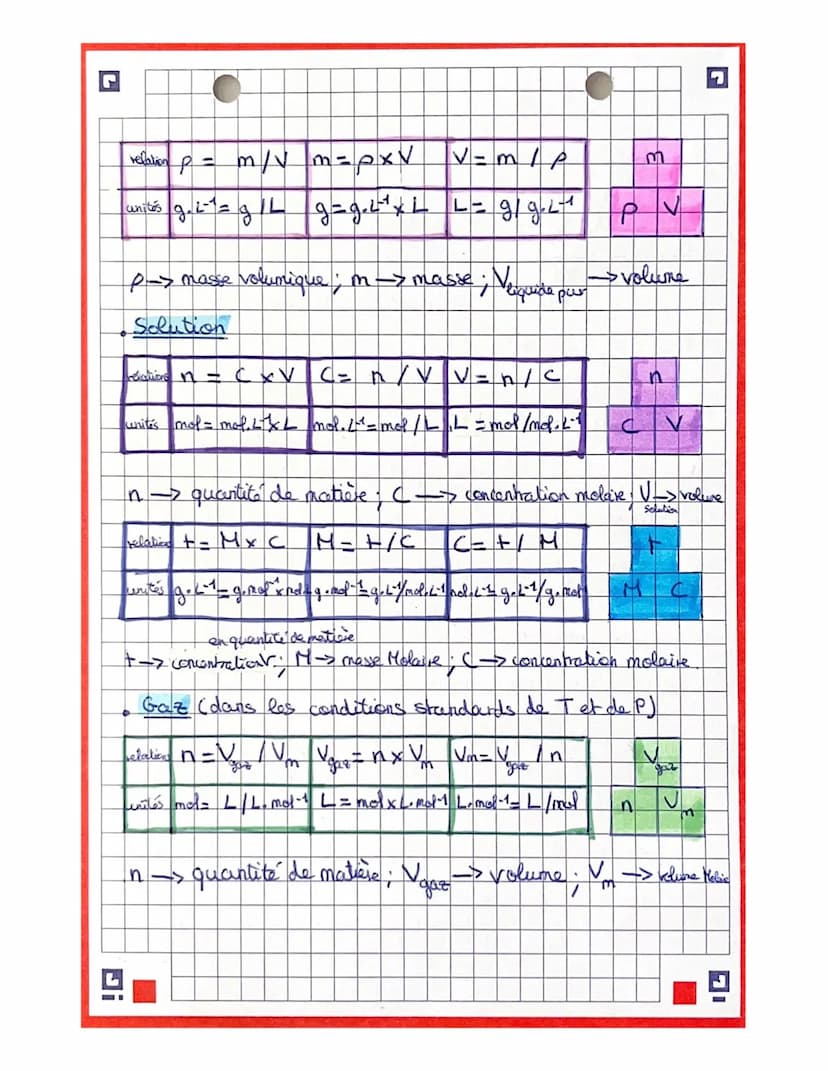 relation ρ = m/V m = ρ x V V = m / ρ m
unités g.L⁻¹ = g/L g = g.L⁻¹ x L L = g/g.L⁻¹ ρ V
ρ → masse volumique ; m → masse ; V liquide pur → volume
. Solution
relations n = C x V C = n / V V = n / C n
unités mol = mol.L⁻¹ x L mol.L⁻¹ = mol / L L = mol/mol.L⁻¹ C V
n → quantité de matière ; C → concentration molaire ; V solution → volume
relations t = M x C M = t / C C = t / M t
unités g.L⁻¹ = g.mol⁻¹ x mol.L⁻¹ g.mol⁻¹ = g.L⁻¹/mol.L⁻¹ mol.L⁻¹ = g.L⁻¹/g.mol M C
en quantité de matière
t → concentration ; M → masse Molaire ; C → concentration molaire.
. Gaz (dans les conditions standards de T et de P)
relations n = Vgaz / Vm Vgaz = n x Vm Vm = Vgaz / n Vgaz
unités mol = L/L.mol⁻¹ L = mol x L.mol⁻¹ L.mol⁻¹ = L/mol n Vm
n → quantité de matière ; Vgaz → volume ; Vm → volume Molaire